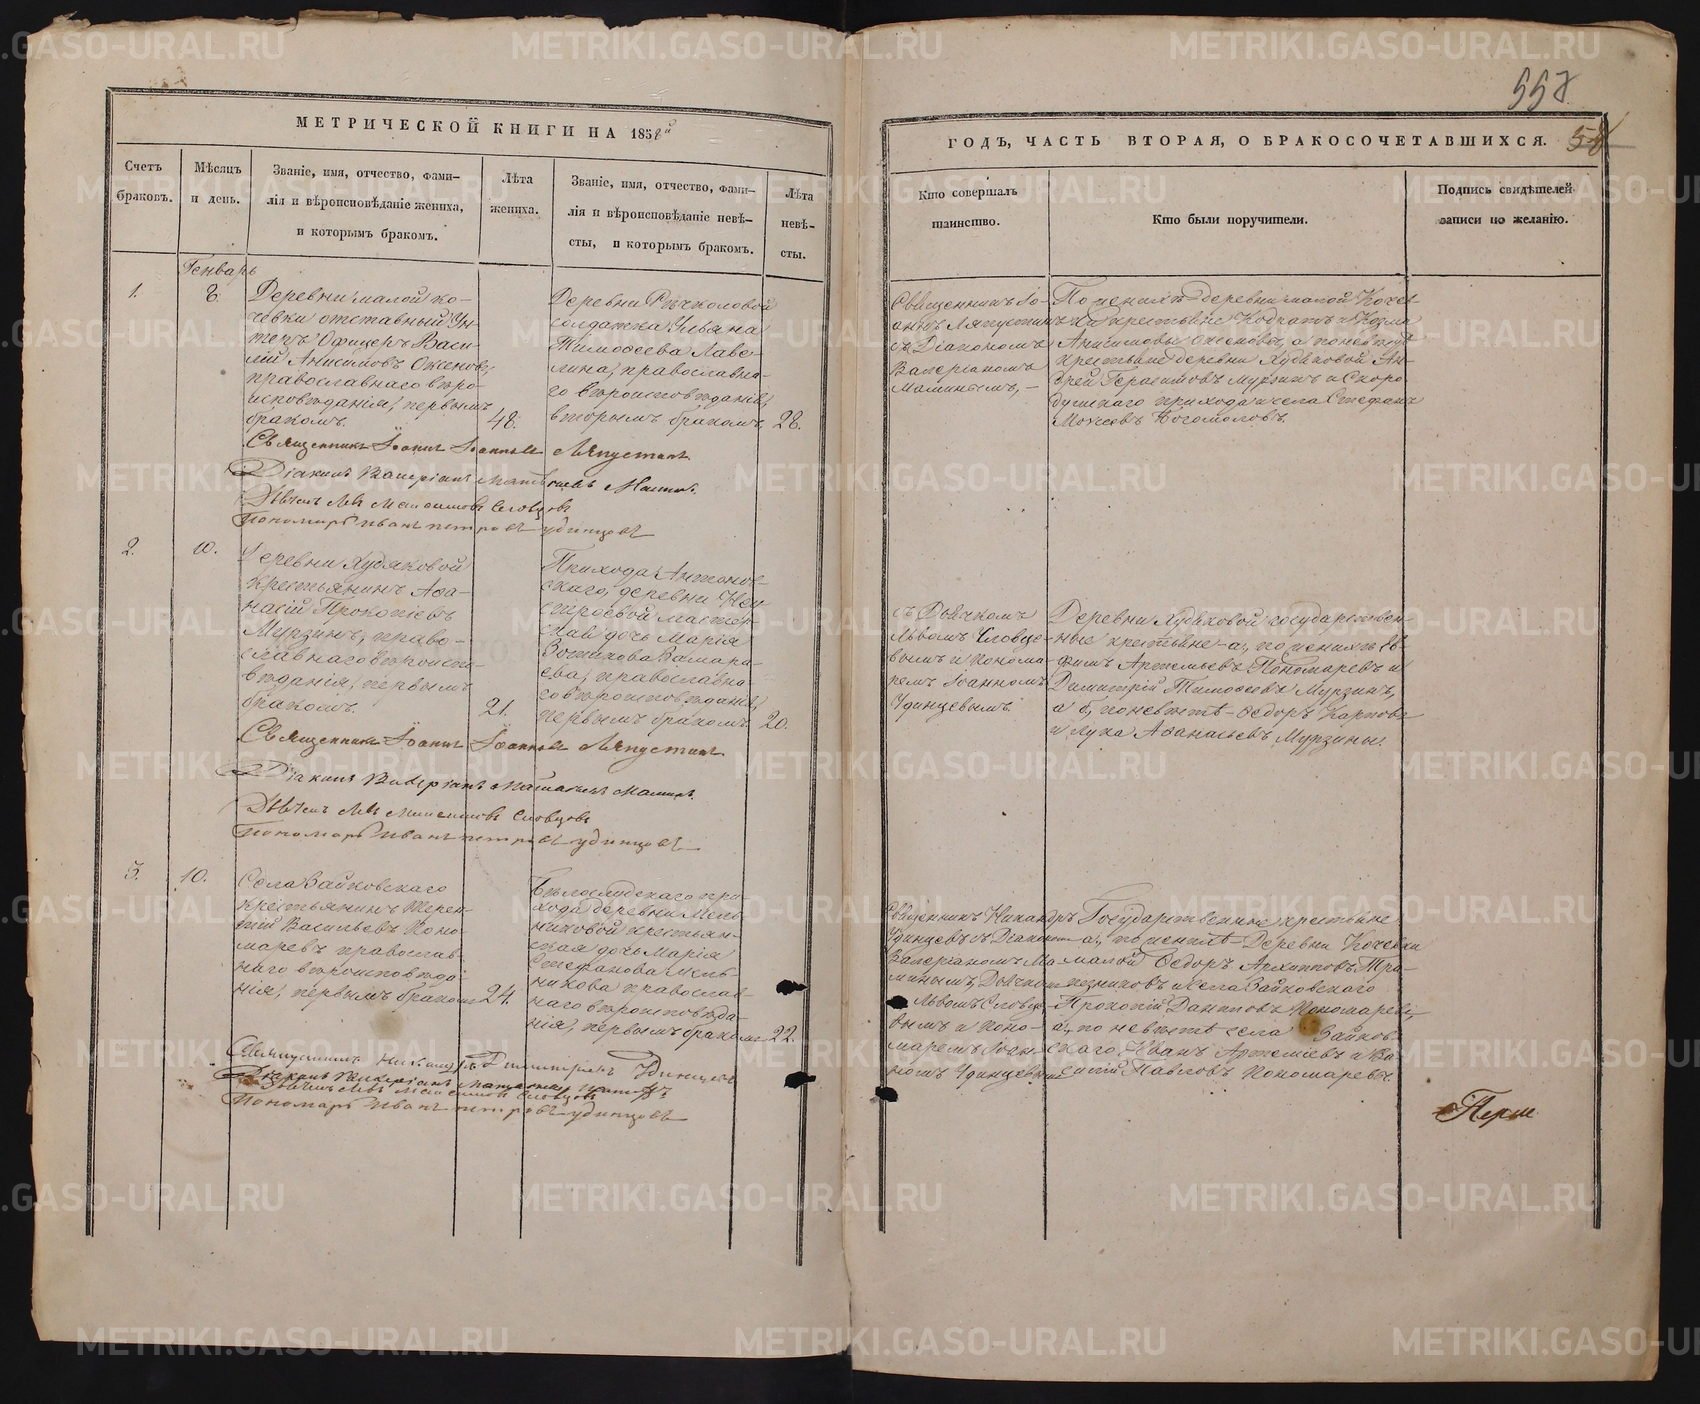 558
МЕТРИЧЕСКОЙ КНИГИ НА 1858й
ГОДЪ, ЧАСТЬ ВТОРАЯ, О БРАКОСОЧЕТАВШИХСЯ.
Счетъ
браковъ.
Мѣсяцъ
и день.
Званіе, имя, отчество, фами-
лія и вѣроисповѣданіе жениха,
и которымъ бракомъ.
Лѣта
жениха.
Званіе, имя, отчество, фами-
лія и вѣроисповѣданіе невѣ-
сты, и которымъ бракомъ.
Лѣта
невѣ-
сты.
Кто совершалъ
таинство.
Кто были поручители.
Подпись свидѣтелей
записи по желанію.
Генварь
1.
8.
Деревни малой ко-
чевки отставный Ун-
теръ Офицеръ Васи-
лій Анисимовъ Оксеновъ,
православнаго вѣро-
исповѣданія, первымъ
бракомъ.
48.
Деревни Рѣчкаловой
солдатка Ульяна
Тимофеева Лавс-
лина, православна-
го вѣроисповѣданія,
вторымъ бракомъ.
28.
Священникъ Іо-
аннъ Ляпустинъ
съ Діакономъ
Валеріаномъ
Маминымъ,
По женихѣ деревни малой Кочев-
ки крестьяне Кодратъ и Козма
Анисимовы Оксеновы, а по невѣстѣ
крестьяне деревни Худяковой Ан-
дрей Герасимовъ Мурзинъ и Скоро-
думскаго прихода и села Стефанъ
Моисеевъ Богомоловъ.
Священникъ Іоаннъ Іоанновъ Ляпустинъ
Діаконъ Валеріанъ Матвѣевъ Маминъ.
Дьячекъ Левъ Максимовъ Словцовъ
Пономарь Иванъ Петровъ Удинцовъ
2.
10.
Деревни Худяковой
крестьянинъ Афа-
насій Прокопіевъ
Мурзинъ, право-
славнаго вѣроиспо-
вѣданія, первымъ
бракомъ.
21.
Прихода Антонов-
скаго, деревни
дочь Марія
православна-
го вѣроисповѣданія,
первымъ бракомъ.
20.
съ Дьячкомъ
Львомъ Словцо-
вымъ и Понома-
ремъ Іоанномъ
Удинцевымъ.
Деревни Худяковой государствен-
ные крестьяне а, по женихѣ Ев-
фимъ Артемьевъ Пономаревъ и
Димитрій Тимофеевъ Мурзинъ,
а б, по невѣстѣ Ѳедоръ Карповъ
и Лука Афанасьевъ Мурзины.
Священникъ Іоаннъ Іоанновъ Ляпустинъ.
Діаконъ Валеріанъ Матвѣевъ Маминъ.
Дьячекъ Левъ Максимовъ Словцовъ
Пономарь Иванъ Петровъ Удинцовъ
3.
10.
Села Зайковскаго
крестьянинъ Терен-
тій Васильевъ Поно-
маревъ православ-
наго вѣроисповѣда-
нія, первымъ бракомъ
24.
Бѣлослудскаго при-
хода деревни Мель-
никовой крестьян-
ская дочь Марія
Стефанова Мель-
никова православ-
наго вѣроисповѣда-
нія, первымъ бракомъ
22.
Священникъ Никандръ
Удинцевъ съ Діакономъ
Валеріаномъ Ма-
минымъ, Дьячкомъ
Львомъ Словцо-
вымъ и Поно-
маремъ Іоан-
номъ Удинцевымъ
Государственные крестьяне
а, по женихѣ Деревни Кочевки
малой Ѳедоръ Архиповъ Тра-
пезниковъ и села Зайковскаго
Прокопій Даниловъ Пономаревъ,
а, по невѣстѣ села Зайков-
скаго Иванъ Артеміевъ и Ва-
силій Павловъ Пономаревы.
Священникъ Никандръ Димитріевъ Удинцевъ
Діаконъ Валеріанъ Матвѣевъ Маминъ
Дьячекъ Левъ Максимовъ Словцовъ
Пономарь Иванъ Петровъ Удинцовъ
METRIKI.GASO-URAL.RU